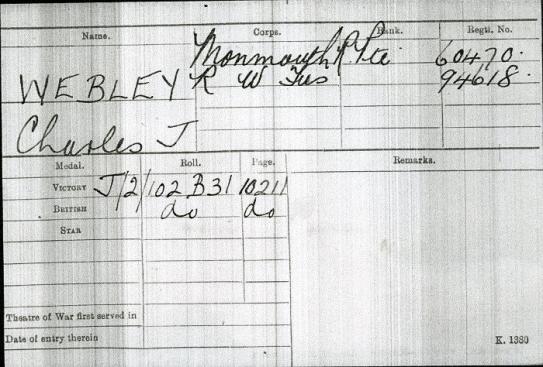 Name. Corps. Rank. Regtl. No.
Monmouth R Pte 60470.
WEBLEY R W Fus 94618.
Charles J
Medal. Roll. Page. Remarks.
VICTORY J/2/102 B31 10211
BRITISH do do
STAR
Theatre of War first served in
Date of entry therein
K. 1380